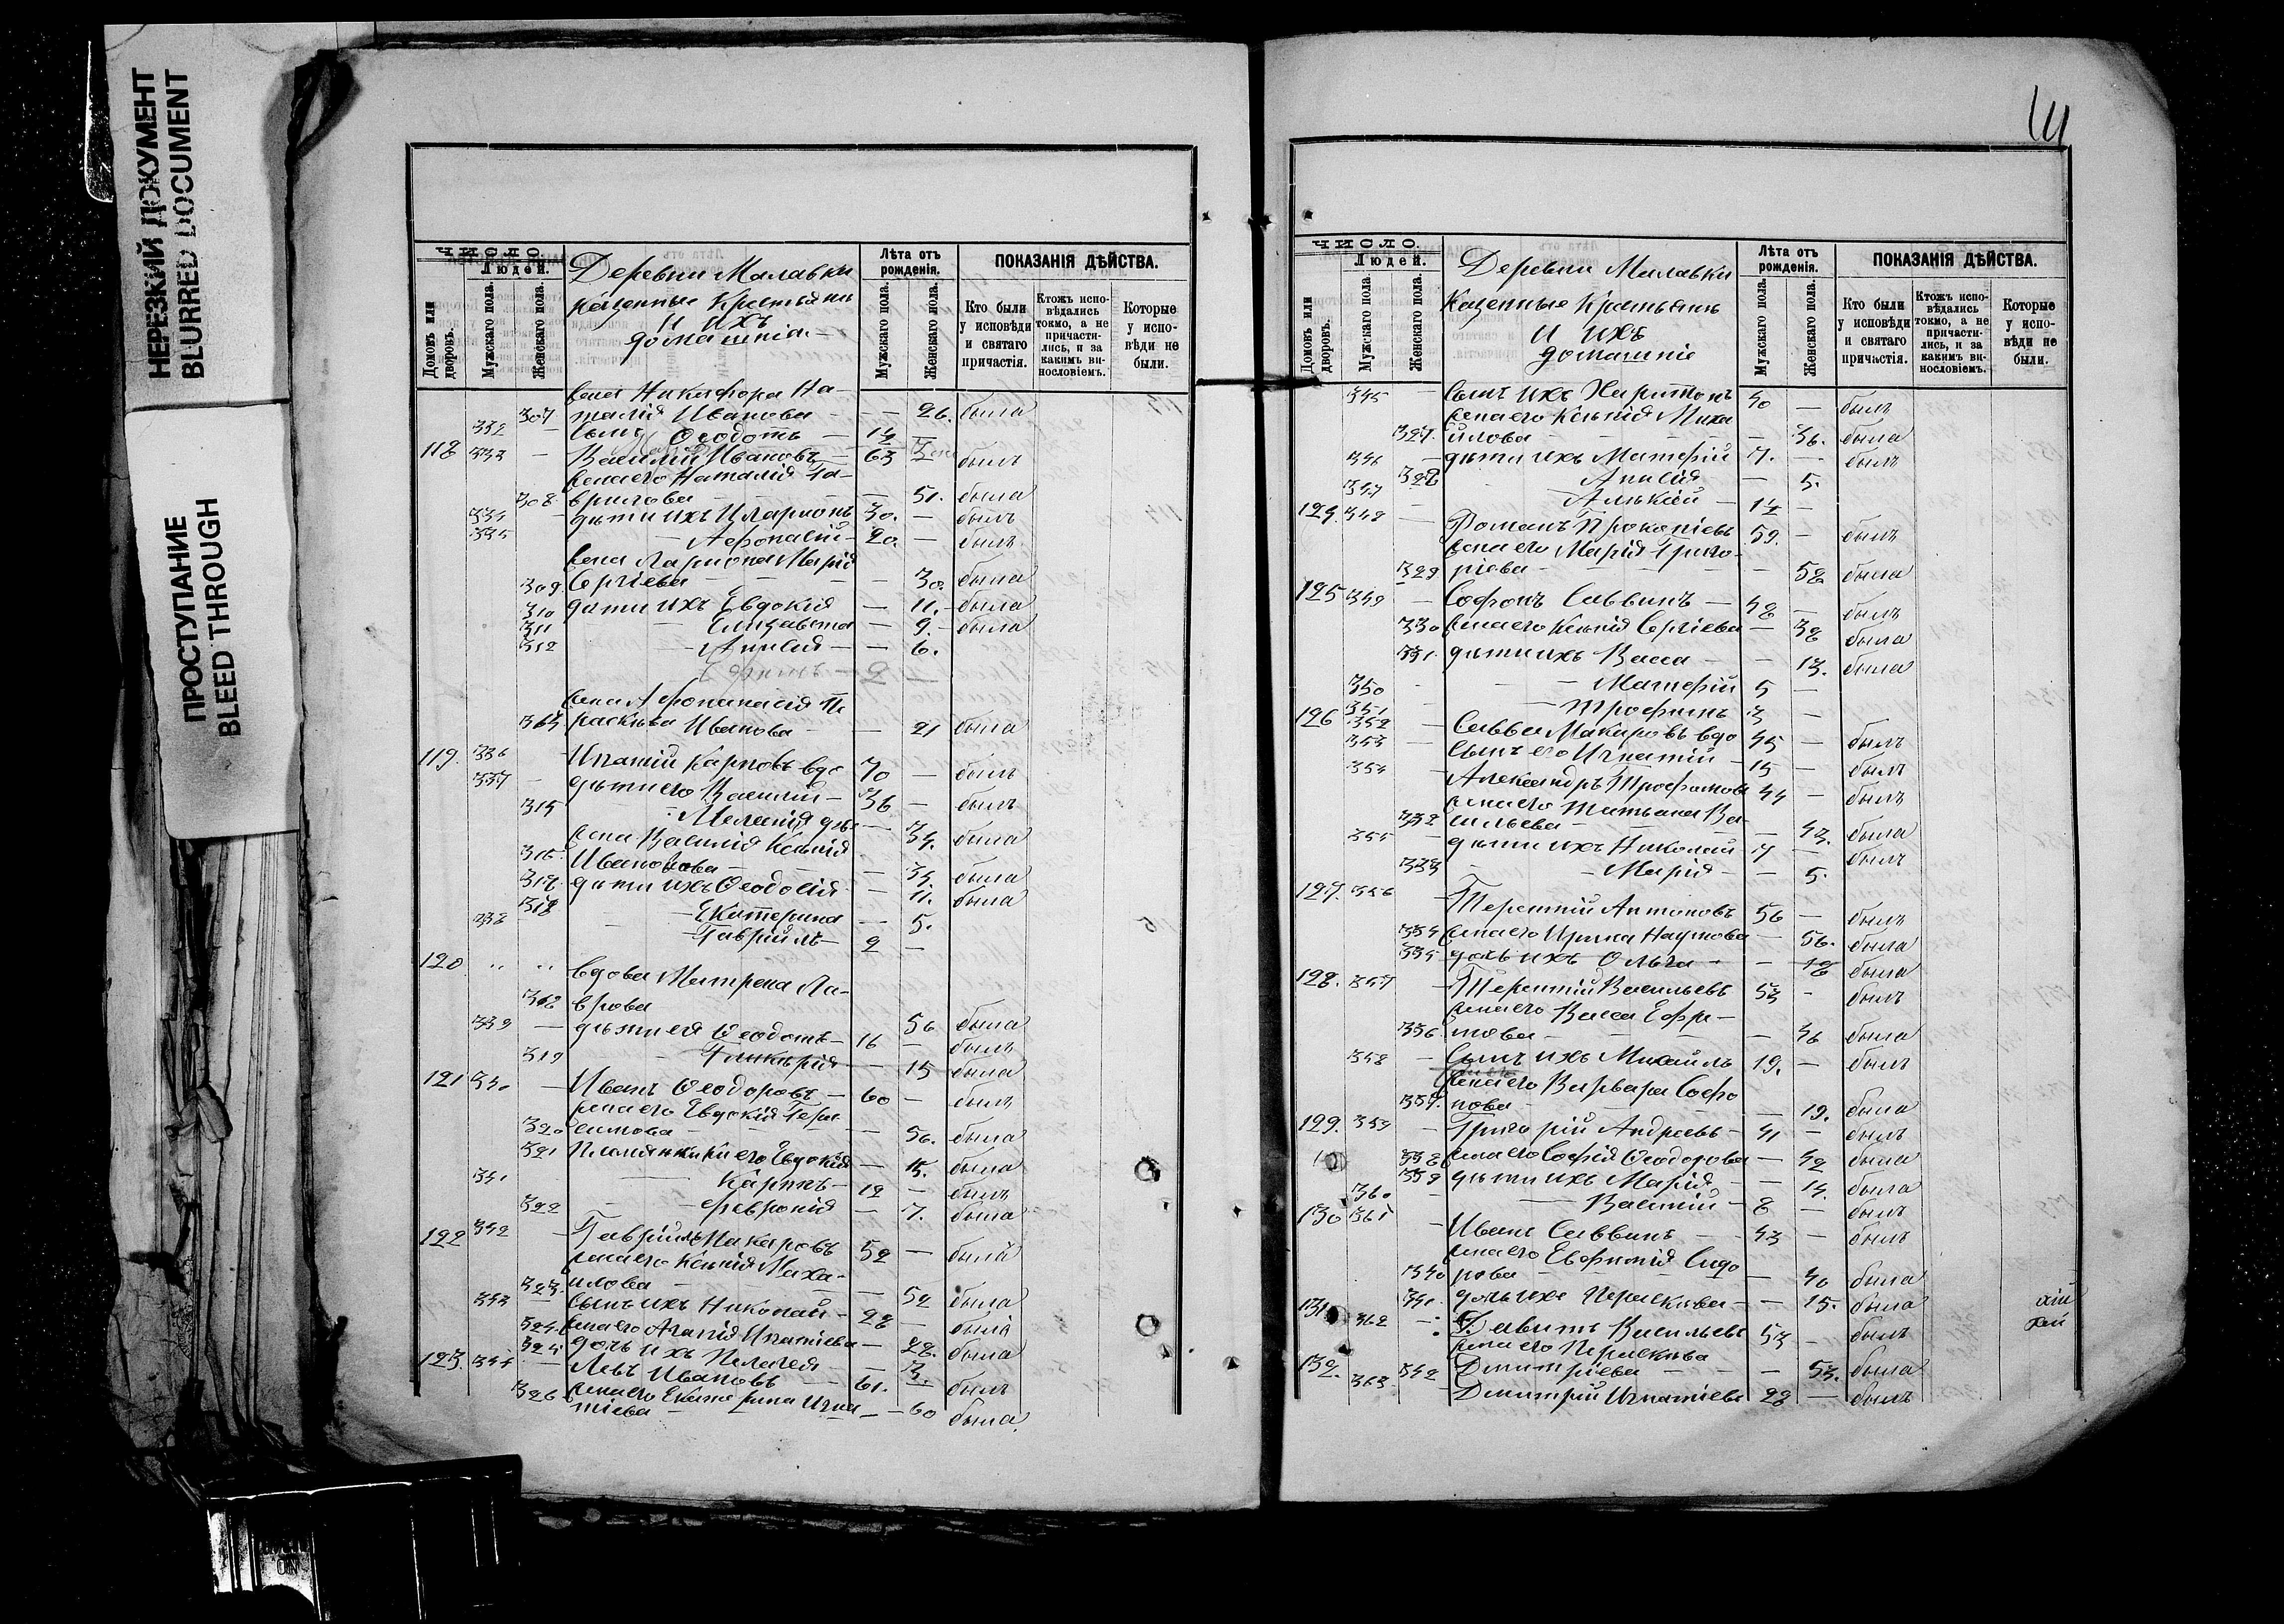 НЕРЕЗКИЙ ДОКУМЕНТ
BLURRED DOCUMENT
ПРОСТУПАНИЕ
BLEED THROUGH
ЧИСЛО.
Людей.
Домовъ или дворовъ.
Мужскаго пола.
Женскаго пола.
Деревни Малавки
казенные Крестьянъ
и ихъ
домашніе
Лѣта отъ рожденія.
Мужскаго пола.
Женскаго пола.
ПОКАЗАНІЯ ДѢЙСТВА.
Кто были у исповѣди и святаго причастія.
Ктожъ исповѣдались токмо, а не причастились, и за какимъ винословіемъ.
Которые у исповѣди не были.
жена Никифора На-
307 талія Иванова — — 26. была
332 сынъ Ѳеодотъ — 1½ —
118 333 — Василій Ивановъ — 63 — былъ
жена его Наталія Га-
308 врилова — — 51. была
334 дѣти ихъ Иларіонъ 30. — былъ
335 — Афонасій — 20. — былъ
жена Ларіона Марія
309. Сергіева — — 30. была
310 дѣти ихъ Евдокія — 11. — была
311 — Елизавета — 9. — была
312 — Анисія — — 6.
жена Афонанасія Па
раскѣва Иванова — — 21 была
119. 336 Игнатій Карповъ вдо 70 — былъ
337 — дѣти его Василій — 36 — былъ
315 — Меланія дѣ — 34. была
жена Василія Ксенія
316. Иванова — — 34 была
317. дѣти ихъ Ѳеодосія — 11. была
318 — Екатерина — 5.
338 — Гавріилъ — 2 —
120 „ „ вдова Матрена Ла-
318 врова 56 была
339 — дѣти ея Ѳеодотъ — 16 — былъ
319 — Гликерія — 15 была
121 340 — Иванъ Ѳеодоровъ — 60 — былъ
жена его Евдокія Гера
320 симова — — 56. была
321 Племянники его Евдокія — 15. была
341 — Карпъ — 12 — былъ
322 — Февронія — 7. была
122 342 — Гавріилъ Макаровъ 52 — былъ
жена его Ксенія Миха-
323. илова — — 52 была
343 — сынъ ихъ Николай — 28 — былъ
324. жена его Агапія Игнатіева — 28. была
325 дочь ихъ Пелагея — — 3.
123. 344 — Левъ Ивановъ — 61. — былъ
326 жена его Екатерина Игна
тіева — — 60 была.
111
ЧИСЛО.
Людей.
Домовъ или дворовъ.
Мужскаго пола.
Женскаго пола.
Деревни Малавки
Казенные Крестьянъ
и ихъ
домашніе
Лѣта отъ рожденія.
Мужскаго пола.
Женскаго пола.
ПОКАЗАНІЯ ДѢЙСТВА.
Кто были у исповѣди и святаго причастія.
Ктожъ исповѣдались токмо, а не причастились, и за какимъ винословіемъ.
Которые у исповѣди не были.
345 — сынъ ихъ Харитонъ 40 — былъ
жена его Ксенія Миха
327. йлова — — 36. была
346 — дѣти ихъ Матфій 7. — былъ
328 Анисія — 5.
347 — Алексій — 1½ —
124. 348 — Романъ Прокопіевъ 59. — былъ
жена его Марія Григо-
329 ріева — — 58 была
125 349 — Софонъ Саввинъ — 48 — былъ
330 жена его Ксенія Сергіева — 38 была
331. дѣти ихъ Васса — — 13. была
350 — Матфій 5 —
351 — Трофимъ 3 —
126 352 — Савва Макаровъ вдо 45 — былъ
353 — сынъ его Игнатій — 15 — былъ
354 — Александръ Трофимовъ 44 — былъ
жена его Татьяна Ва-
332 сильева — — 43. была
355 — дѣти ихъ Николай 7 — былъ
333 — Марія — — 5.
127. 356 — Терентій Антоновъ 56 — былъ
334 жена его Ирина Наумова — 56. была
335 дочь ихъ Ольга — — 18 была
128. 357 — Терентій Васильевъ 53 — былъ
жена его Васса Ефре-
336. мова — — 46 была
358 — Сынъ ихъ Михаилъ 19. — былъ
жена его Варвара Софо
337. нова — — 19. была
129. 359 — Григорій Андреевъ — 41 — былъ
338 жена его Софія Ѳеодорова — 42 была
339 дѣти ихъ Марія — — 14. была
360 — Василій — 8 — былъ
130 361 — Иванъ Саввинъ — 43 — былъ
жена его Евфимія Сидо
340 рова — — 40 была
341. дочь ихъ Параскѣва — — 15. была
131 362 — Давитъ Васильевъ 53 — былъ
жена его Параскѣва
342 Димитріева — — 53. была
132. 363 — Димитрій Игнатіевъ 28 — былъ